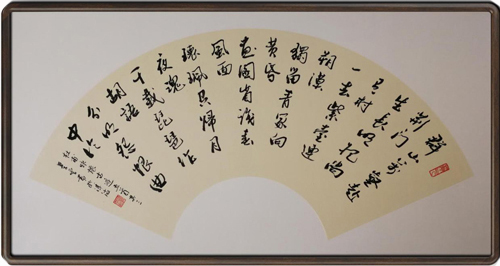 群山万壑赴
荆门
生长明妃尚
有村
一去紫臺連
朔漠
獨留青冢向
黄昏
畫圖省識春
風面
環珮空歸月
夜魂
千載琵琶作
胡語
分明怨恨曲
中论